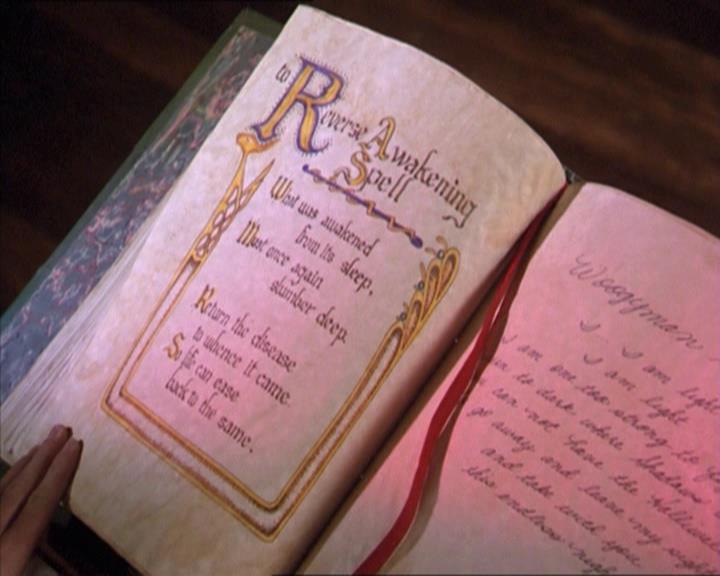 to Reverse Awakening
Spell
What was awakened
from its sleep,
Must once again
slumber deep.
Return the disease
to whence it came.
So life can ease
back to the same.
Woogyman
I am light
I am one too strong to
in to dark where Shadows
can not have the Halliwell
go away and leave my sight
and take with you
this endless nigh